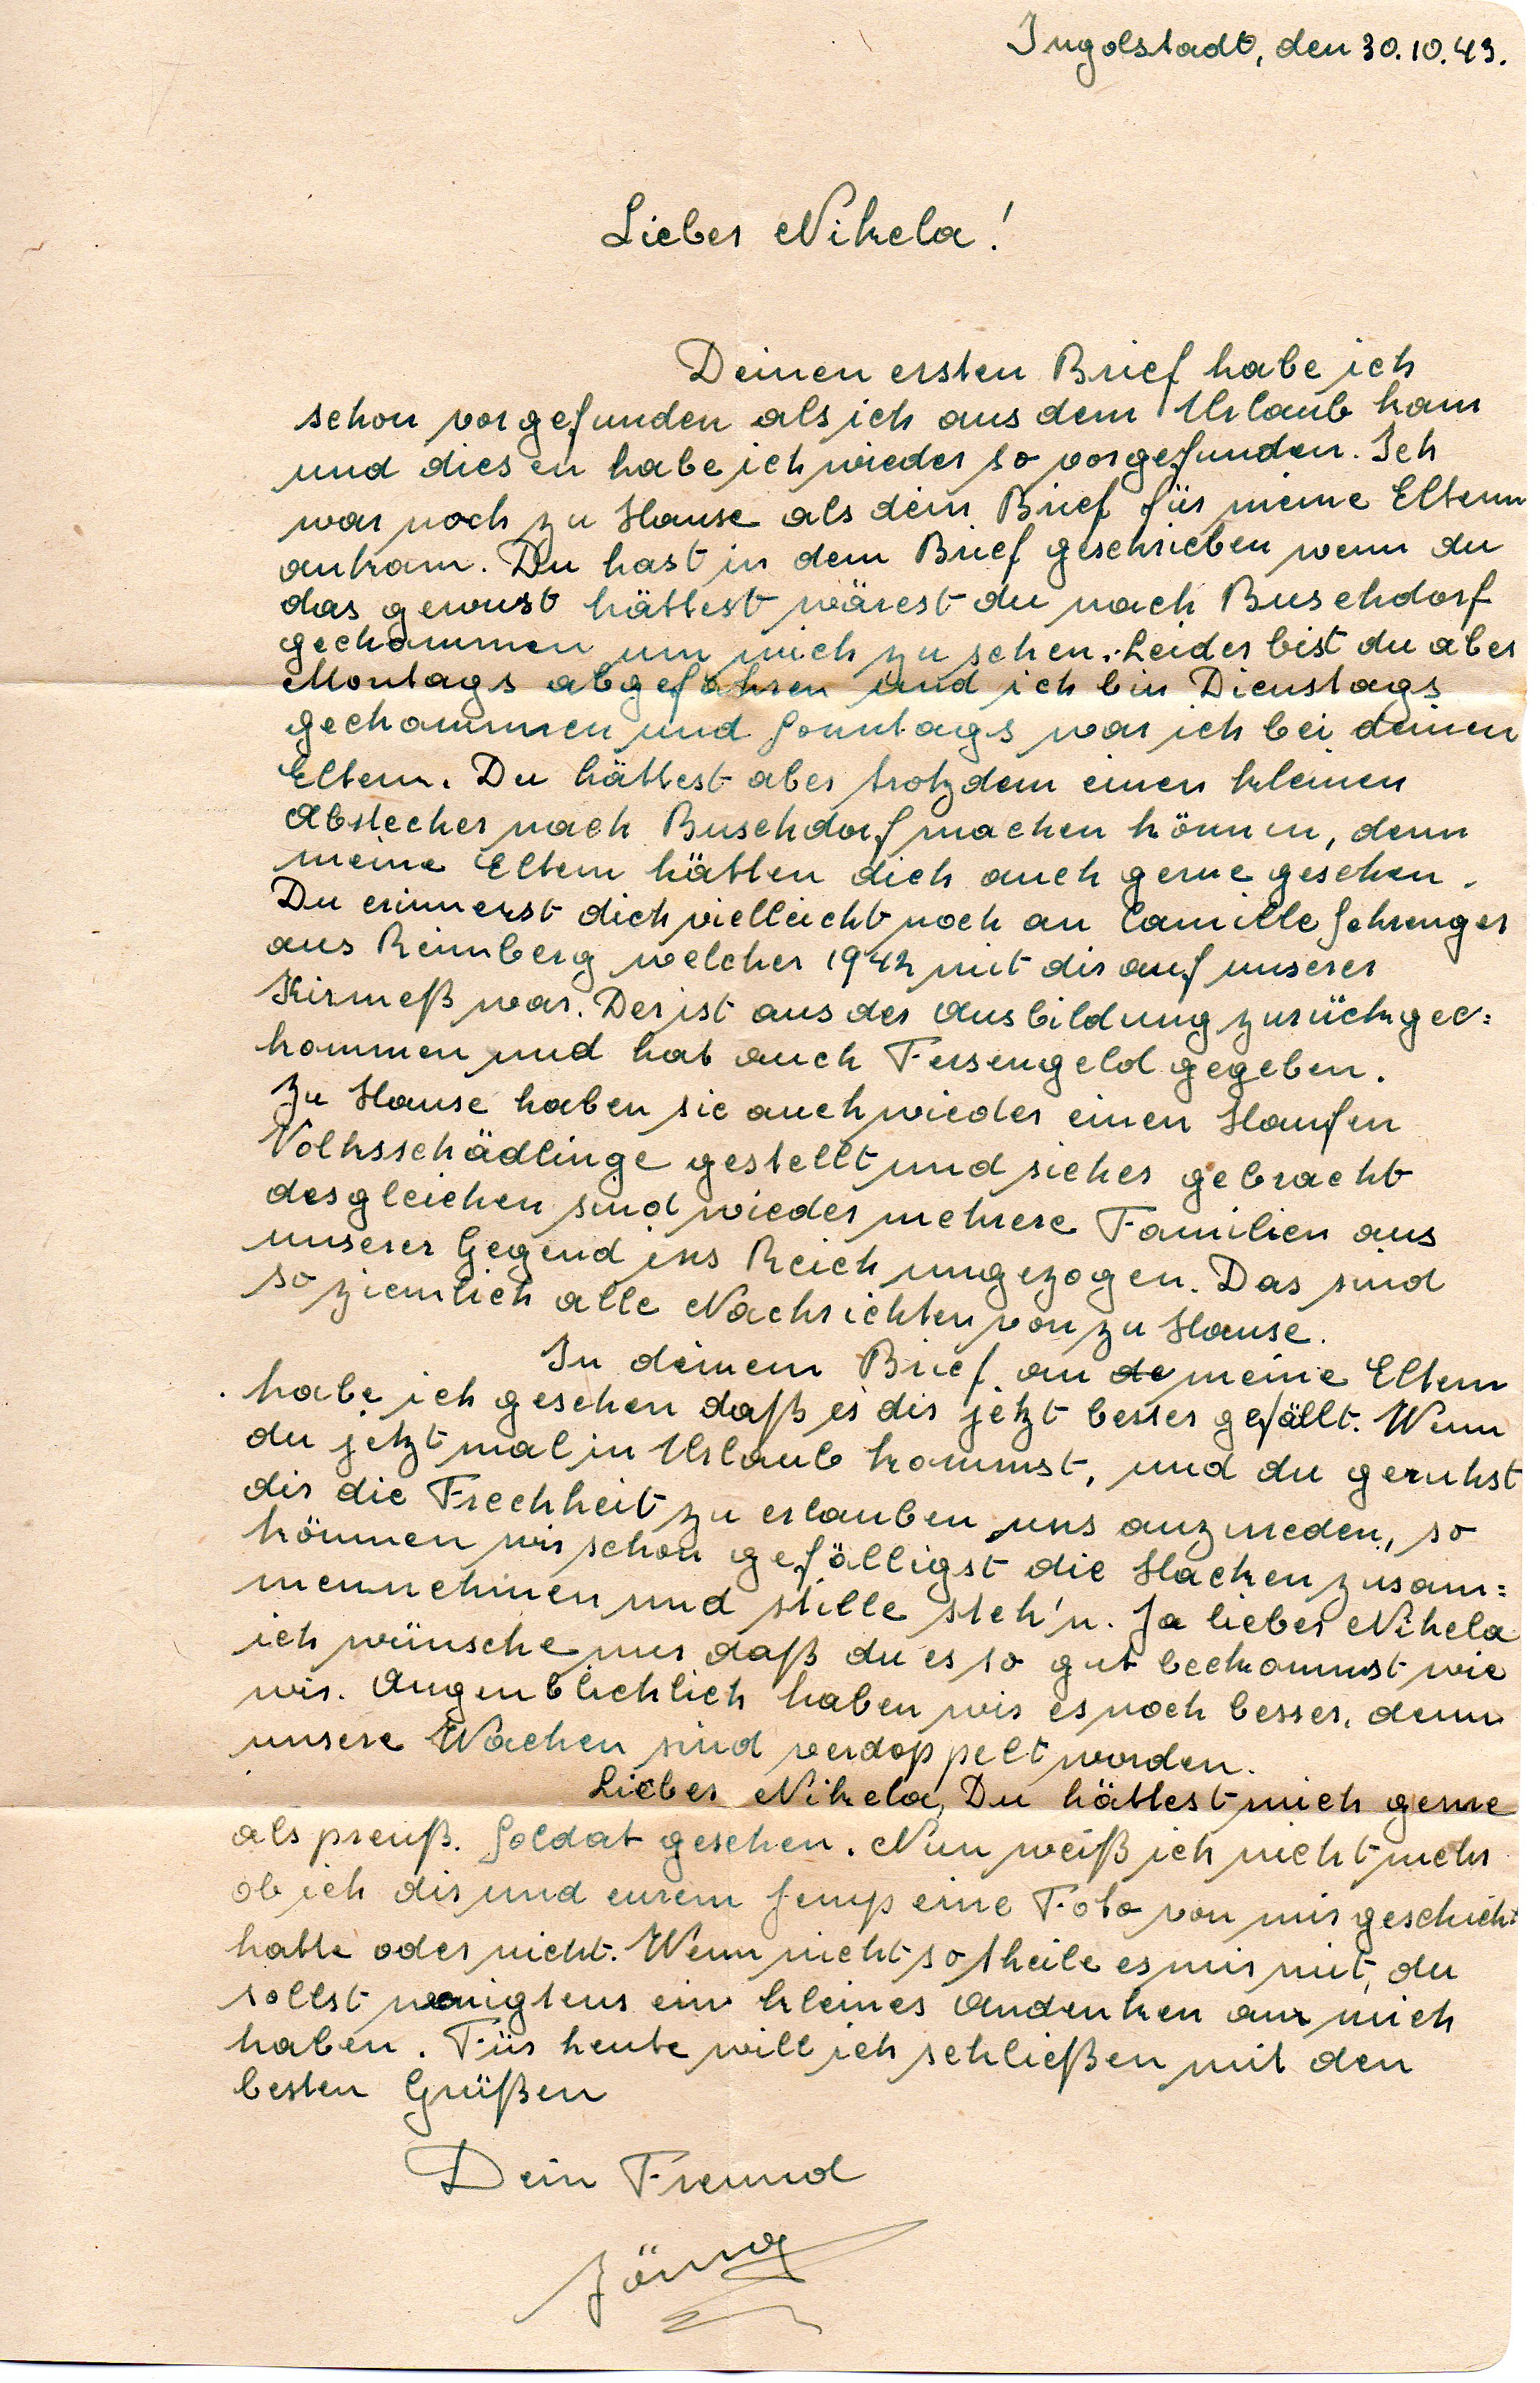 Ingolstadt, den 30.10.43.
Lieber Nikela!
Deinen ersten Brief habe ich
schon vorgefunden als ich aus dem Urlaub kam
und diesen habe ich wieder so vorgefunden. Ich
war noch zu Hause als dein Brief für meine Eltern
ankam. Du hast in dem Brief geschrieben wenn du
das gewust hättest wärest du nach Buschdorf
gekommen um mich zu sehen. Leider bist du aber
Montags abgefahren und ich bin Dienstags
gekommen und Sonntags war ich bei deinen
Eltern. Du hättest aber trotzdem einen kleinen
Abstecher nach Buschdorf machen können, denn
meine Eltern hätten dich auch gerne gesehen.
Du erinnerst dich vielleicht noch an Camille Schrenger
aus Reimberg welcher 1942 mit dir auf unserer
Kirmeß war. Der ist aus der Ausbildung zurückge=
kommen und hat auch Fersengeld gegeben.
Zu Hause haben sie auch wieder einen Haufen
Volksschädlinge gestellt und sicher gebracht
desgleichen sind wieder mehrere Familien aus
unserer Gegend ins Reich umgezogen. Das sind
so ziemlich alle Nachrichten von zu Hause.
In deinem Brief an de meine Eltern
habe ich gesehen daß es dir jetzt besser gefällt. Wenn
du jetzt mal in Urlaub kommst, und du geruhst
dir die Frechheit zu erlauben uns anzureden, so
können wir schon gefälligst die Hacken zusam=
mennehmen und stille steh'n. Ja lieber Nikela
ich wünsche nur daß du es so gut bekommst wie
wir. Augenblicklich haben wir es noch besser, denn
unsere Wachen sind verdoppelt worden.
Lieber Nikela, Du hättest mich gerne
als preuß. Soldat gesehen. Nun weiß ich nicht mehr
ob ich dir und eurem Jemp eine Foto von mir geschickt
hatte oder nicht. Wenn nicht so theile es mir mit, du
sollst wenigstens ein kleines Andenken an mich
haben. Für heute will ich schließen mit den
besten Grüßen
Dein Freund